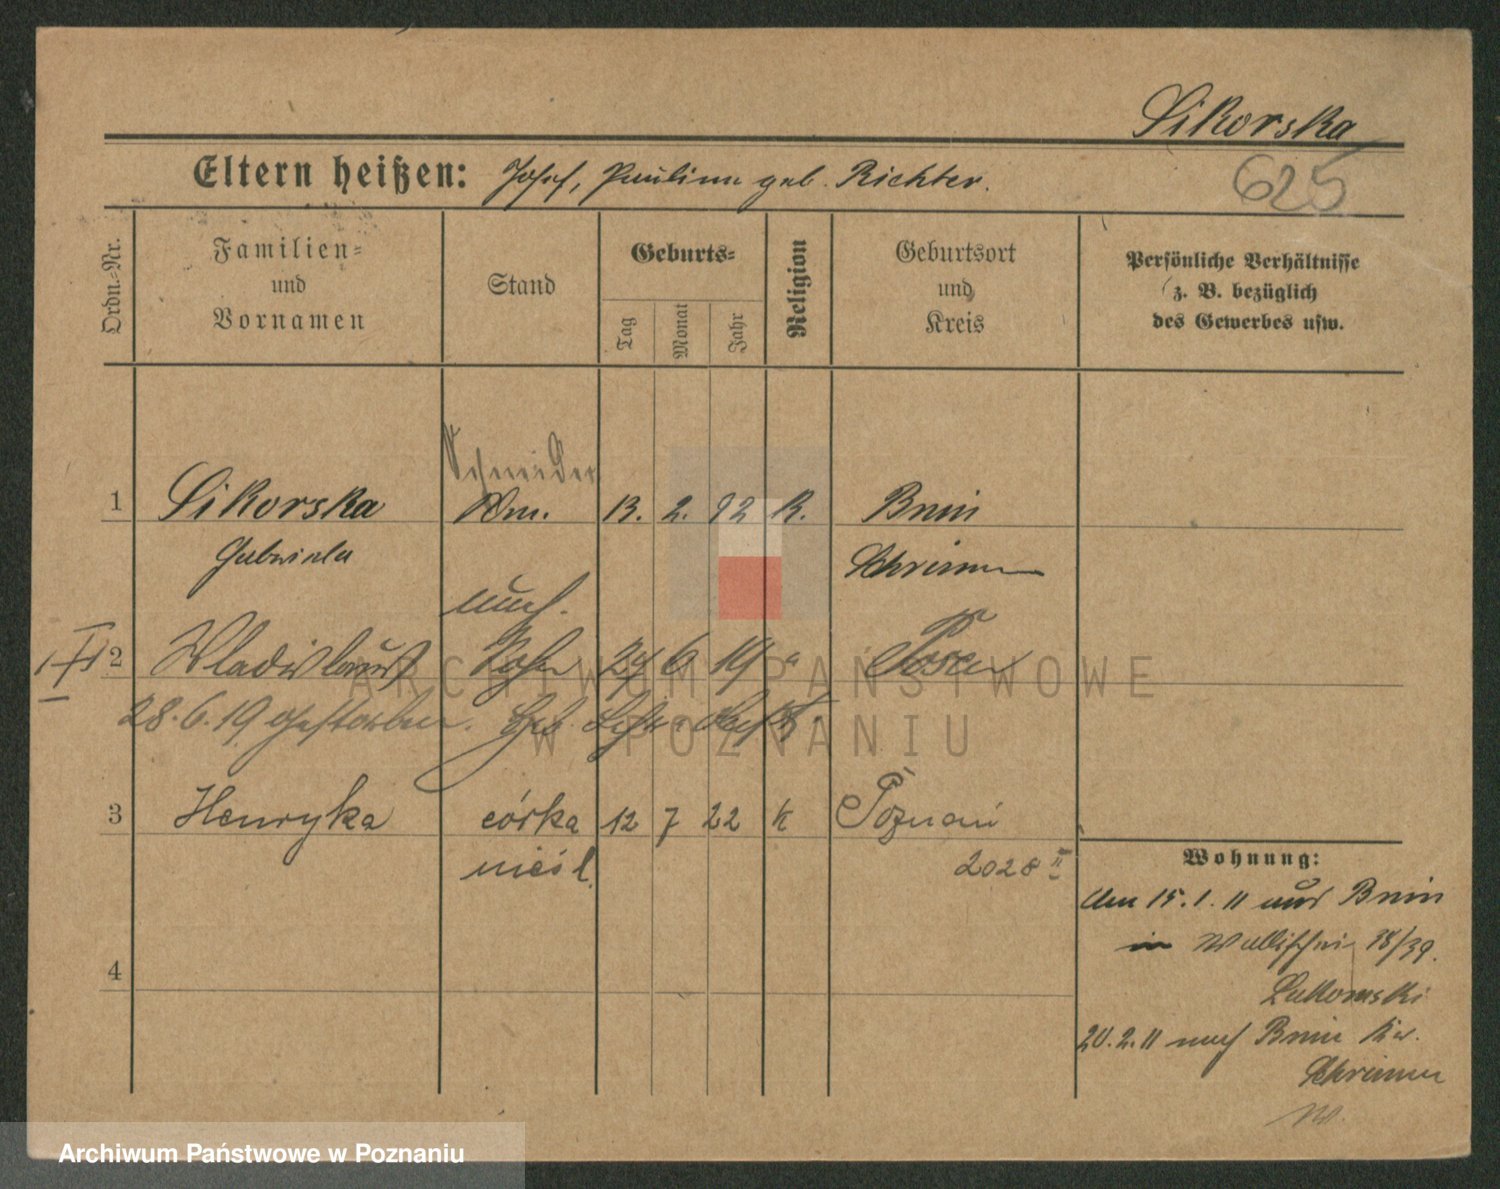 Sikorska
Eltern heißen: Josef, Paulina geb. Richter.
625
Ordn.-Nr.
Familien-
und
Vornamen
Stand
Geburts-
Tag
Monat
Jahr
Religion
Geburtsort
und
Kreis
Persönliche Verhältnisse
z. B. bezüglich
des Gewerbes usw.
Schneider
1 Sikorska 13. 2. 92 K. Bnin
Gabriela Schrimm
uneh.
2 Wladislaus Sohn 24 6 19 " Posen
28.6.19 gestorben.
3 Henryka córka 12 7 22 k Poznań
nieśl. 2028 II
4
Wohnung:
Am 15.1.11 aus Bnin
in Wallischei 38/39.
Lukomski
20.2.11 nach Bnin Kr.
Schrimm
W.
ARCHIWUM PAŃSTWOWE
W POZNANIU
Archiwum Państwowe w Poznaniu